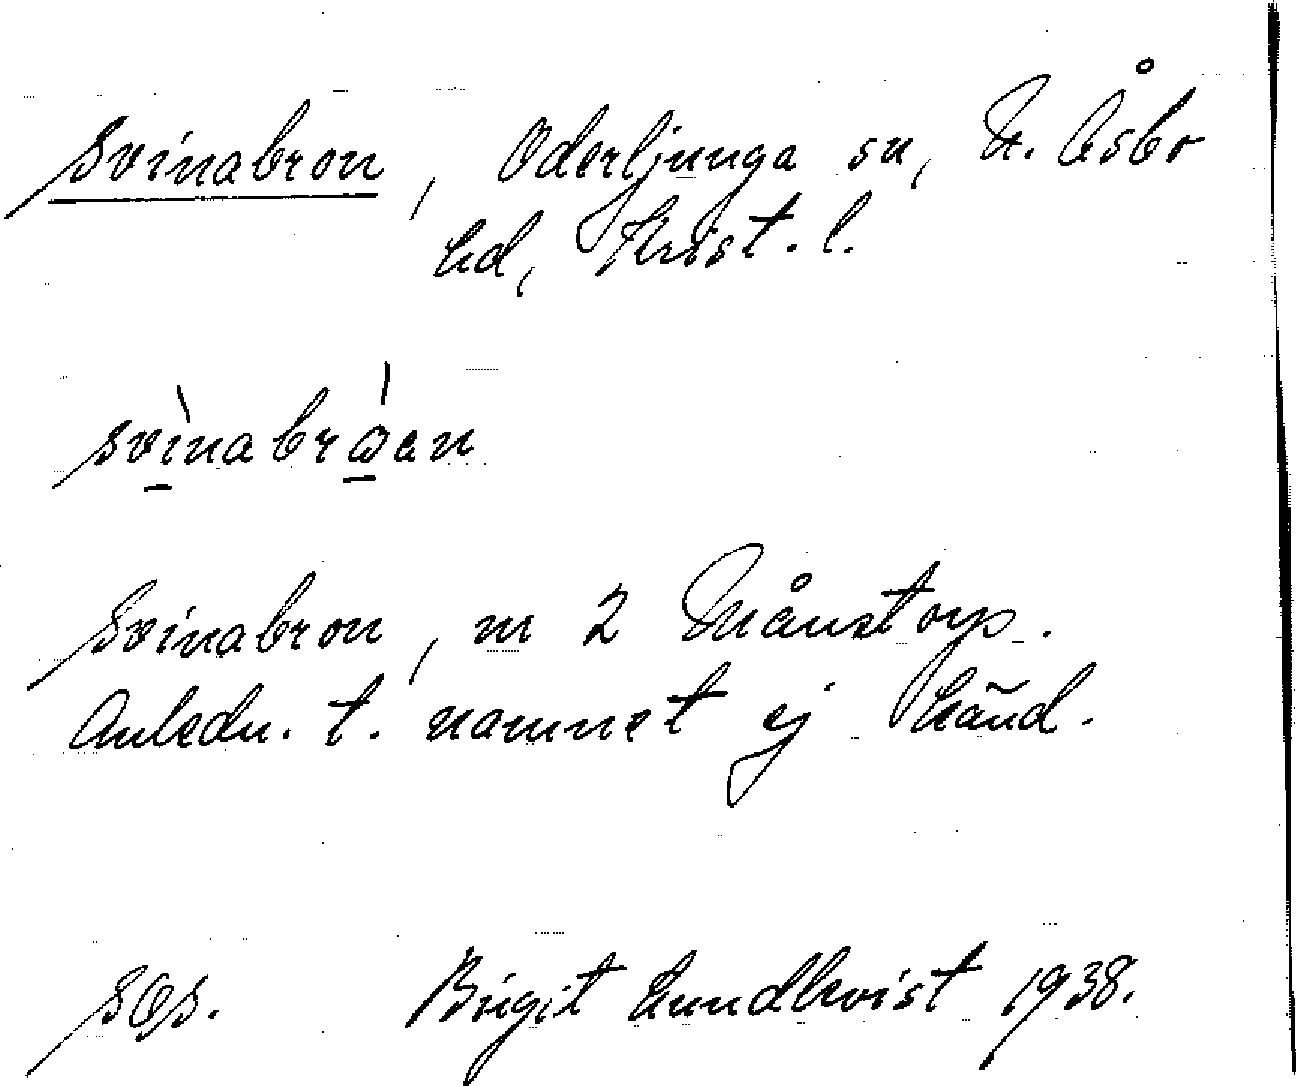 Svinabron, Oderljunga sn, N. Åsbo
hd, Krist. l.
svìnabrɷ̀en
Svinabron, m 2 Månstorp.
Anledn. t. namnet ej känd.
Birgit Lundkvist 1938.